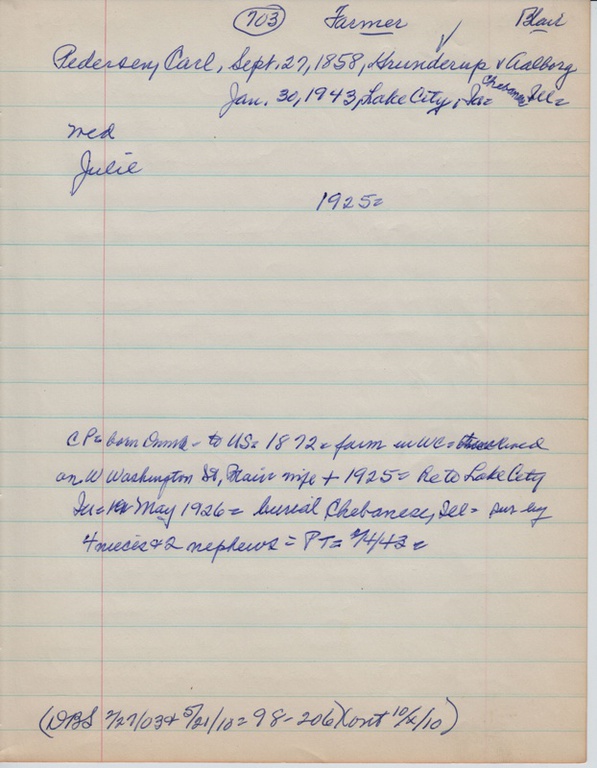 703 Farmer Blair
Pedersen, Carl, Sept. 27, 1858, Grunderup v Aalborg
Jan. 30, 1943, Lake City, Ia= Chebanse Ill=
med
Julie
1925=
CP= born Dnmk - to US= 1872= farm in WC= lived
on W Washington St, Blair= wife + 1925= Re to Lake City
Ia= May 1926= burial Chebanese, Ill= sur by
4 nieces & 2 nephews = PT= 2/4/43=
(DBS 2/27/03 & 5/21/10= 98-206)(ont 10/2/10)